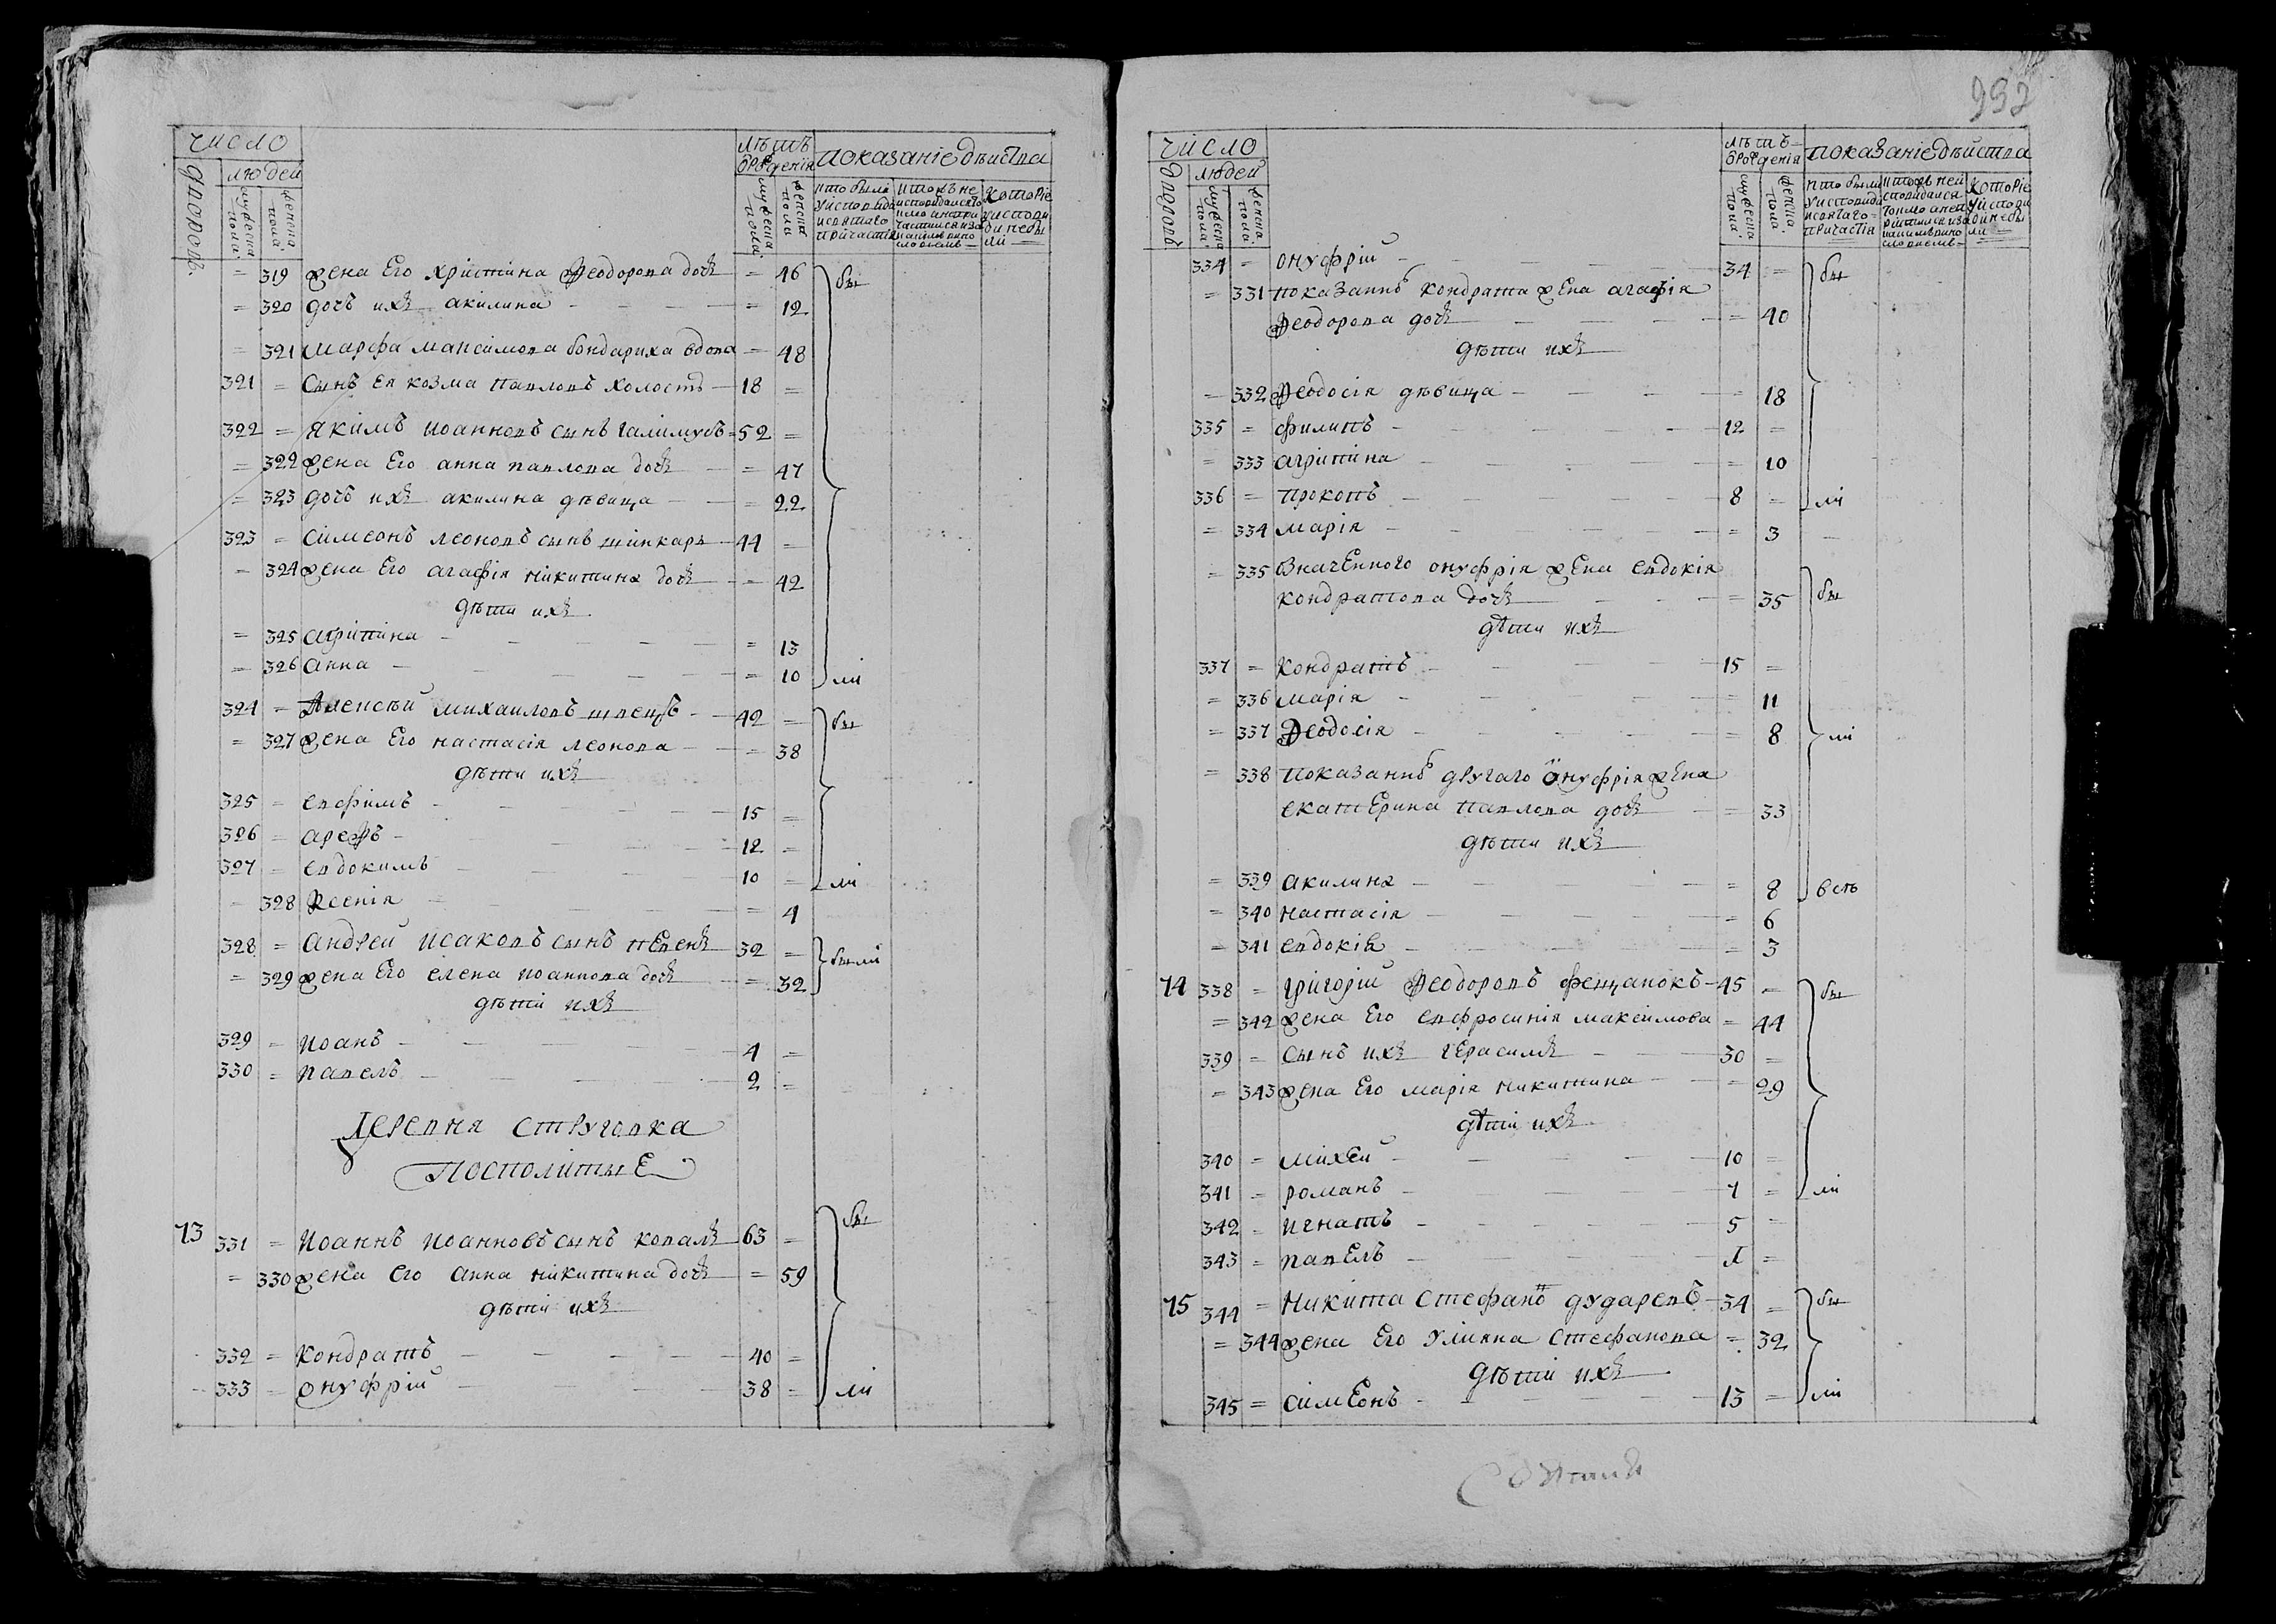 число
дворовъ
людей
мужеска пола
женска пола
лѣтъ
ѿ рожденія
мужеска пола
женска пола
показаніе дѣиства
кто были
у исповѣди
и святаго
причастія
которіе
у исповѣ
ди не бы
ли
= 319 жена Его христина Ѳеодорова дочь = 46 бы
= 320 дочь ихъ акилина = 12
= 321 марфа максимова бондариха вдова = 48
321 = сынъ Ея козма павловъ холостъ 18 =
322 = якимъ иоанновъ сынъ галимусъ 52 =
= 322 жена Его анна павлова дочь = 47
= 323 дочь ихъ акилина дѣвица = 22
323 = симеонъ леоновъ сынъ шинкарь 44 =
= 324 жена Его агафія никитина дочь = 42
дѣти ихъ
= 325 агрипина = 13
= 326 анна = 10 ли
324 = Алексѣй михаиловъ швецъ 42 = бы
= 327 жена Его настасія леонова = 38
дѣти ихъ
325 = евфимъ 15 =
326 = арефъ 12 =
327 = евдокимъ 10 = ли
= 328 Ѯенія = 4
328 = андрей исаковъ сынъ 32 = были
= 329 жена Его елена иоаннова дочь = 32
дѣти ихъ
329 = иоанъ 4 =
330 = павелъ 2 =
Деревня струговка
посполитыЕ
73 331 = иоаннъ иоанновъ сынъ коваль 63 = бы
= 330 жена его анна никитина дочь = 59
дѣти ихъ
332 = кондратъ 40 =
333 = онуфрій 38 = ли
932
число
дворовъ
людей
мужеска пола
женска пола
лѣтъ
ѿ рожденія
мужеска пола
женска пола
показаніе дѣиства
кто были
у исповѣди
и святаго
причастія
которіе
у исповѣ
ди не бы
ли
334 = онуфрій 34 = бы
= 331 показанно кондрата жена агафія
Ѳеодорова дочь = 40
дѣти ихъ
= 332 Ѳеодосія дѣвица = 18
335 = филипъ 12 =
= 333 агрипина = 10
336 = прокопъ 8 = ли
= 334 марія = 3
= 335 значЕнного онуфрія жЕна евдокія
кондратова дочь = 35 бы
дѣти ихъ
337 = кондратъ 15 =
= 336 марія = 11
= 337 Ѳеодосія = 8 ли
= 338 показанно другаго онуфрія жЕна
екатЕрина павлова дочь = 33
дѣти ихъ
= 339 акилина = 8 всѣ
= 340 настасія = 6
= 341 евдокія = 3
74 338 = григорій Ѳеодоровъ фещанокъ 45 = бы
= 342 жена Его евфросинія максимова = 44
339 = сынъ ихъ гЕрасимъ 30 =
= 343 жена Его марія никитина = 29
дѣти ихъ
340 = михЕй 10 =
341 = романъ 7 = ли
342 = игнатъ 5 =
343 = павЕлъ =
75 344 = никита стефано дударевъ 34 = бы
= 344 жена Его улияна стефанова = 32
дѣти ихъ
345 = симЕонъ 13 = ли